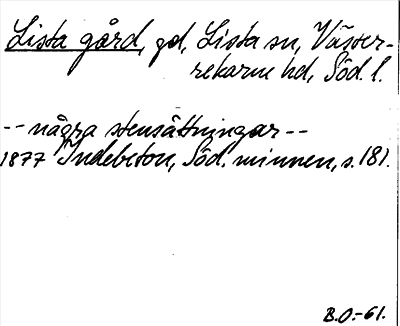 Lista gård, gd, Lista sn, Väster-
rekarne hd, Söd. l.
-- några stensättningar --
1877 Indebetou, Söd. minnen, s. 181.
B.O.-61.